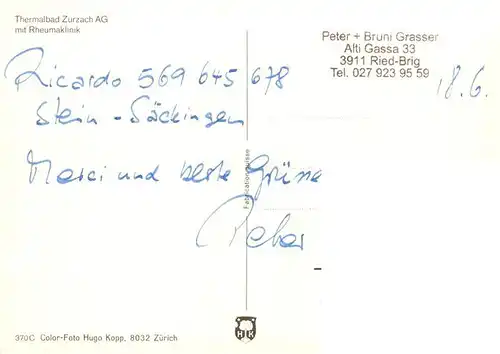 Thermalbad Zurzach AG
mit Rheumaklinik
Peter + Bruni Grasser
Alti Gassa 33
3911 Ried-Brig
Tel. 027 923 95 59
18.6.
Ricardo 569 645 678
Stein - Säckingen
Merci und beste Grüsse
Peter
Fabrication Suisse
370C Color-Foto Hugo Kopp, 8032 Zürich
HK